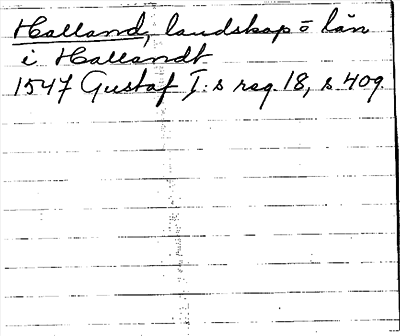 Halland, landskap o län
i Hallandt
1547 Gustaf I:s reg. 18, s 409.